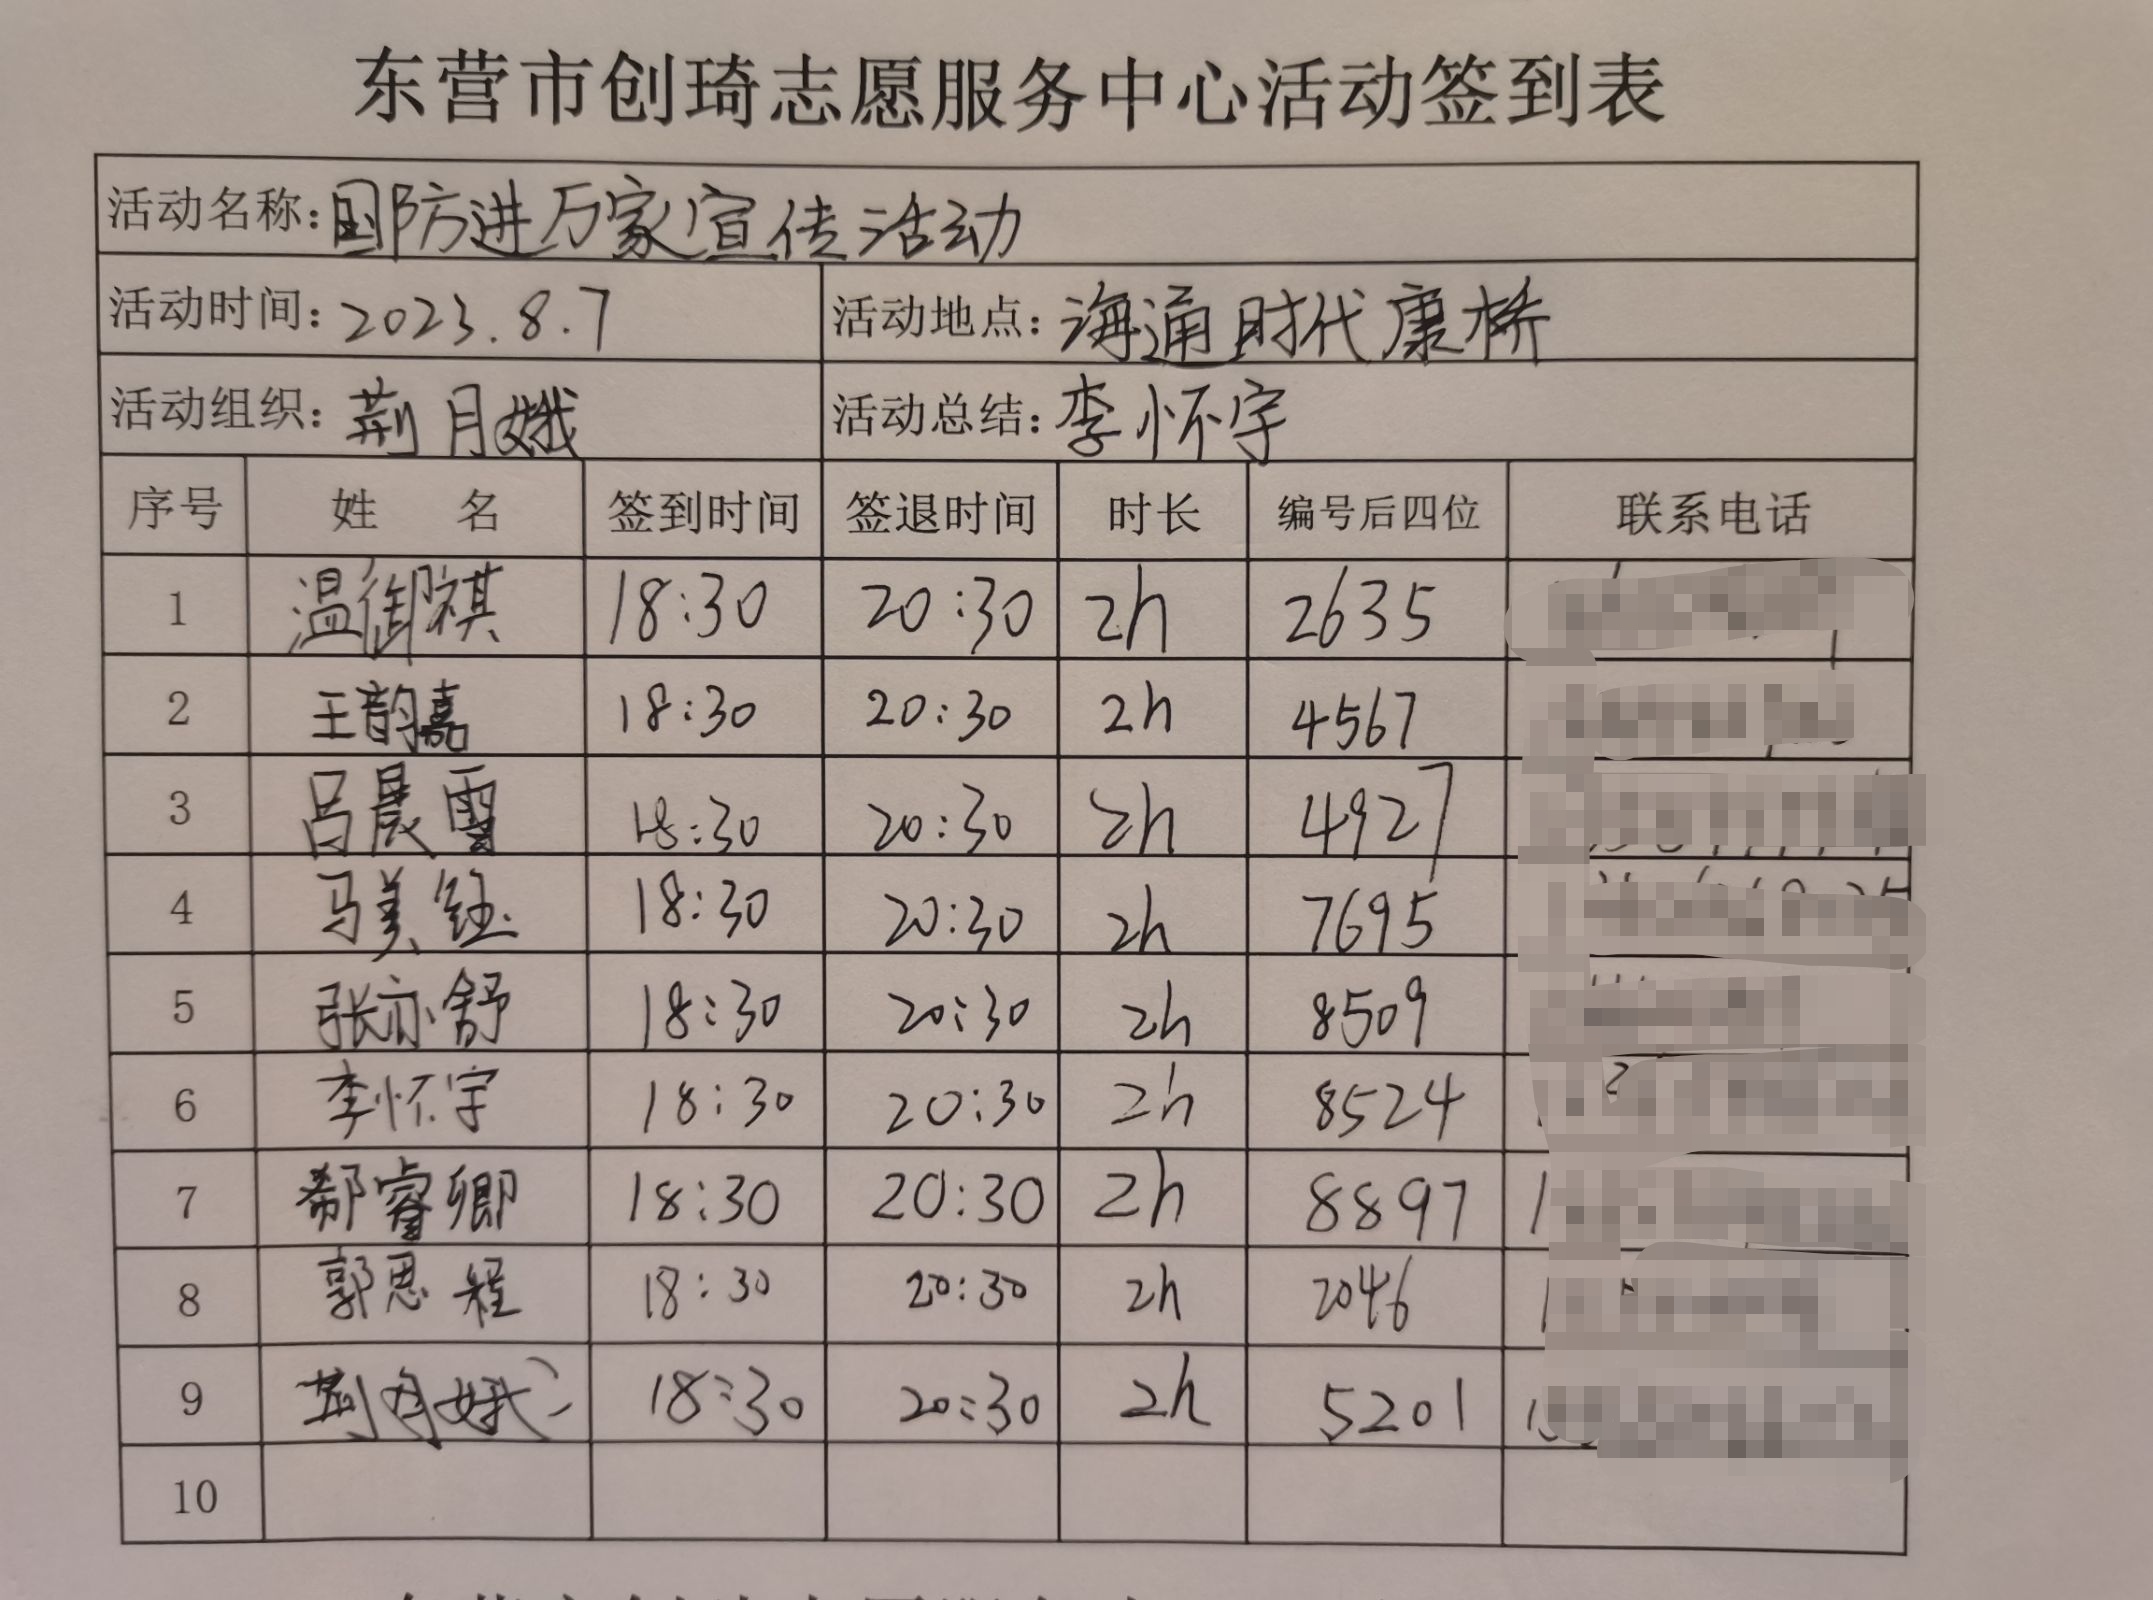 东营市创琦志愿服务中心活动签到表
活动名称：国防进万家宣传活动
活动时间：2023.8.7 活动地点：海通时代康桥
活动组织：荆月娥 活动总结：李怀宇
序号 姓 名 签到时间 签退时间 时长 编号后四位 联系电话
1 温御祺 18:30 20:30 2h 2635
2 王韵嘉 18:30 20:30 2h 4567
3 吕晨雪 18:30 20:30 2h 4927
4 马美钰 18:30 20:30 2h 7695
5 张亦舒 18:30 20:30 2h 8509
6 李怀宇 18:30 20:30 2h 8524
7 郗睿卿 18:30 20:30 2h 8897
8 郭思程 18:30 20:30 2h 2046
9 荆月娥 18:30 20:30 2h 5201
10